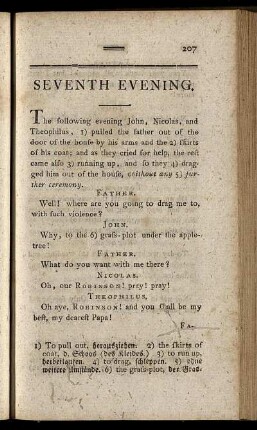 207
SEVENTH EVENING.
The following evening John, Nicolas, and
Theophilus, 1) pulled the father out of the
door of the house by his arms and the 2) skirts
of his coat; and as they cried for help, the rest
came also 3) running up, and so they 4) drag-
ged him out of the house, without any 5) fur-
ther ceremony.
FATHER.
Well! where are you going to drag me to,
with such violence?
JOHN.
Why, to the 6) grass-plot under the apple-
tree!
FATHER.
What do you want with me there?
NICOLAS.
Oh, our ROBINSON! prey! pray!
THEOPHILUS.
Oh aye, ROBINSON! and you shall be my
best, my dearest Papa!
FA-
1) To pull out, herausziehen. 2) the skirts of
coat, d. Schoos (des Kleides.) 3) to run up,
herbeilaufen. 4) to drag, schleppen. 5) ohne
weitere Umstände. 6) the grass-plot, der Gras-